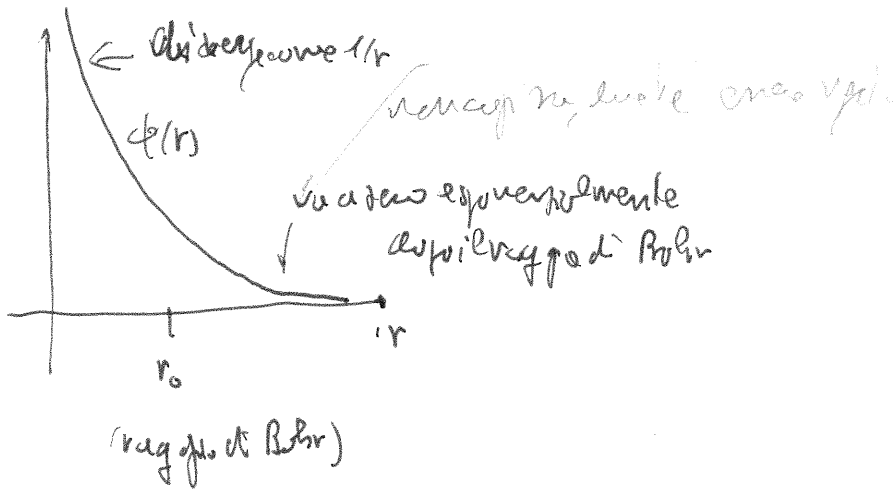 diverge come 1/r
φ(r)
va a zero esponenzialmente
dopo il raggio di Bohr
r
r₀
(raggio di Bohr)